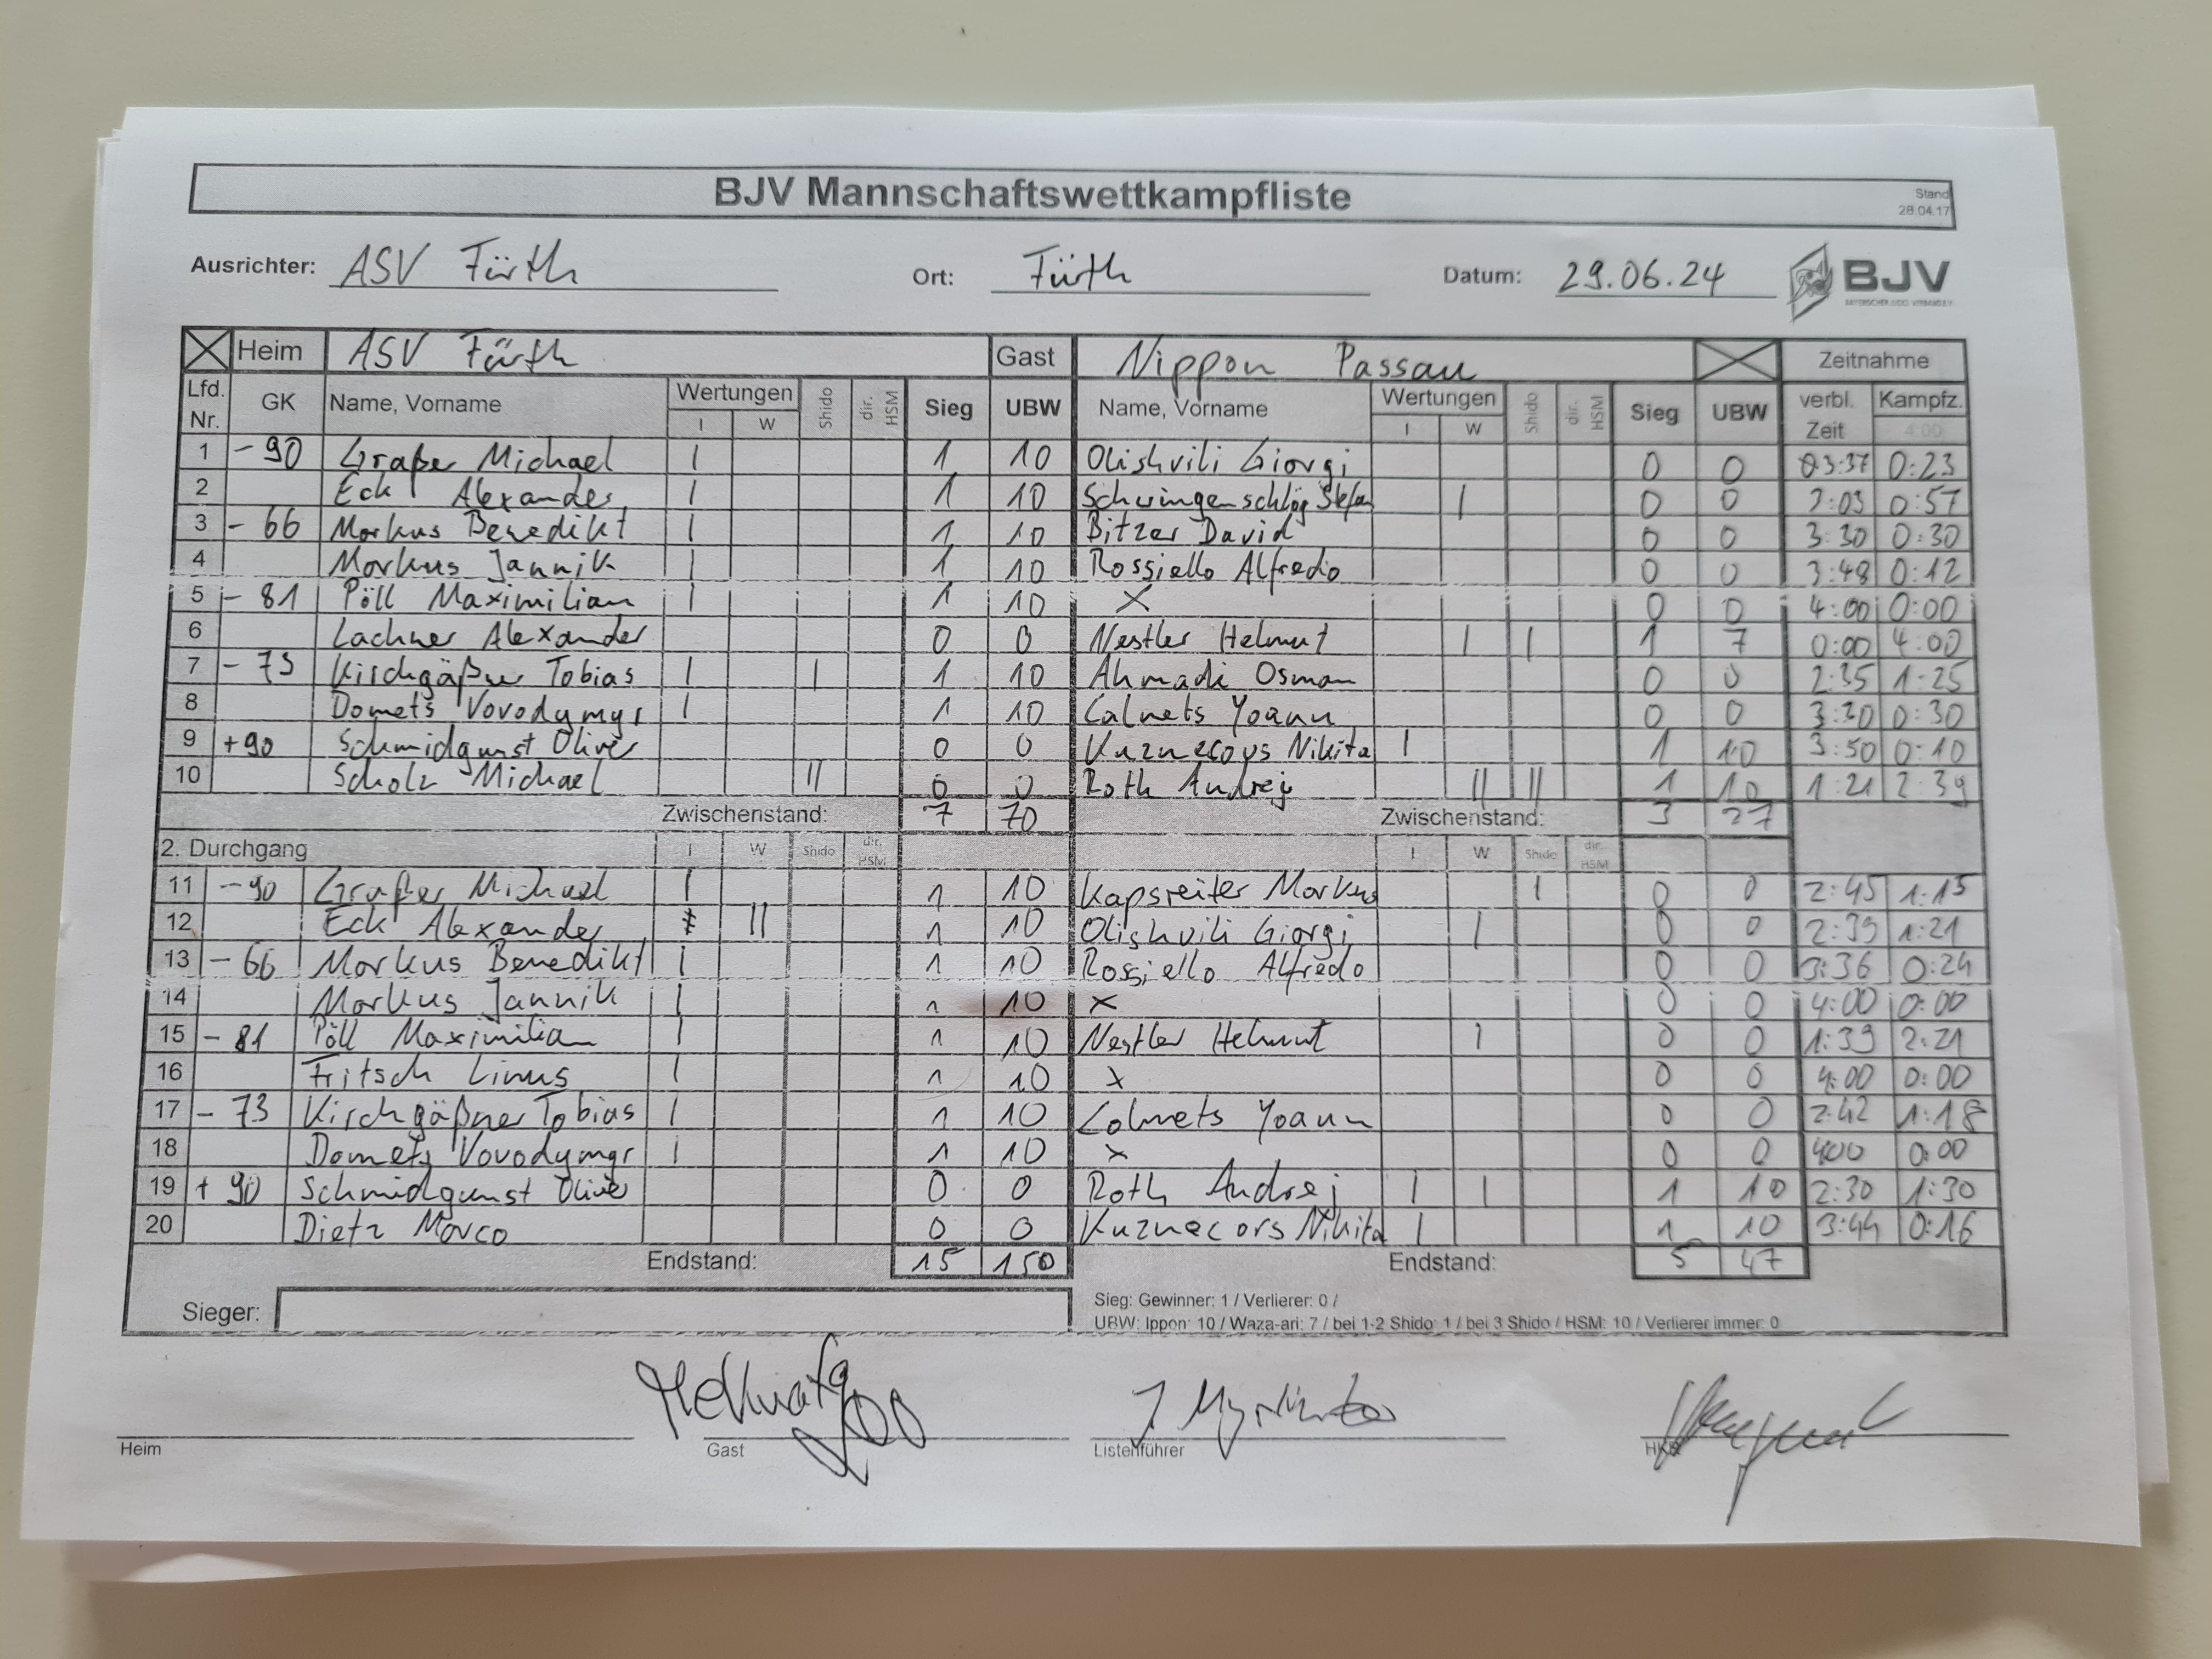 BJV Mannschaftswettkampfliste
Stand
28.04.17
Ausrichter: ASV Fürth Ort: Fürth Datum: 29.06.24 BJV
BAYERISCHER JUDO-VERBAND E.V.
Heim ASV Fürth Gast Nippon Passau Zeitnahme
Lfd. Nr. GK Name, Vorname Wertungen I W Shido dir. HSM Sieg UBW Name, Vorname Wertungen I W Shido dir. HSM Sieg UBW verbl. Zeit Kampfz. 4:00
1 -90 Graßer Michael I 1 10 Olishvili Giorgi 0 0 03:37 0:23
2 Eck Alexander I 1 10 Schwingenschlög Stefan I 0 0 3:03 0:57
3 -66 Markus Benedikt I 1 10 Bitzer David 0 0 3:30 0:30
4 Markus Jannik I 1 10 Rossiello Alfredo 0 0 3:48 0:12
5 -81 Pöll Maximilian I 1 10 X 0 0 4:00 0:00
6 Lachner Alexander 0 0 Nestler Helmut I I 1 7 0:00 4:00
7 -73 Kirchgäßner Tobias I I 1 10 Ahmadi Osman 0 0 2:35 1:25
8 Domets Vovodymyr I 1 10 Calmets Yoann 0 0 3:30 0:30
9 +90 Schmidgunst Oliver 0 0 Kuznecovs Nikita I 1 10 3:50 0:10
10 Scholz Michael II 0 0 Roth Andrej II II 1 10 1:21 2:39
Zwischenstand: 7 70 Zwischenstand: 3 27
2. Durchgang I W Shido dir. HSM I W Shido dir. HSM
11 -90 Graßer Michael I 1 10 Kapsreiter Markus I 0 0 2:45 1:15
12 Eck Alexander II 1 10 Olishvili Giorgi I 0 0 2:39 1:21
13 -66 Markus Benedikt I 1 10 Rossiello Alfredo 0 0 3:36 0:24
14 Markus Jannik I 1 10 X 0 0 4:00 0:00
15 -81 Pöll Maximilian I 1 10 Nestler Helmut I 0 0 1:39 2:21
16 Fritsch Linus I 1 10 X 0 0 4:00 0:00
17 -73 Kirchgäßner Tobias I 1 10 Calmets Yoann 0 0 2:42 1:18
18 Domets Vovodymyr I 1 10 X 0 0 400 0:00
19 +90 Schmidgunst Oliver 0 0 Roth Andrej I I 1 10 2:30 1:30
20 Dietz Marco 0 0 Kuznecors Nikita I 1 10 3:44 0:16
Endstand: 15 150 Endstand: 5 47
Sieger:
Sieg: Gewinner: 1 / Verlierer: 0 /
UBW: Ippon: 10 / Waza-ari: 7 / bei 1-2 Shido: 1 / bei 3 Shido / HSM: 10 / Verlierer immer: 0
Heim Gast Listenführer